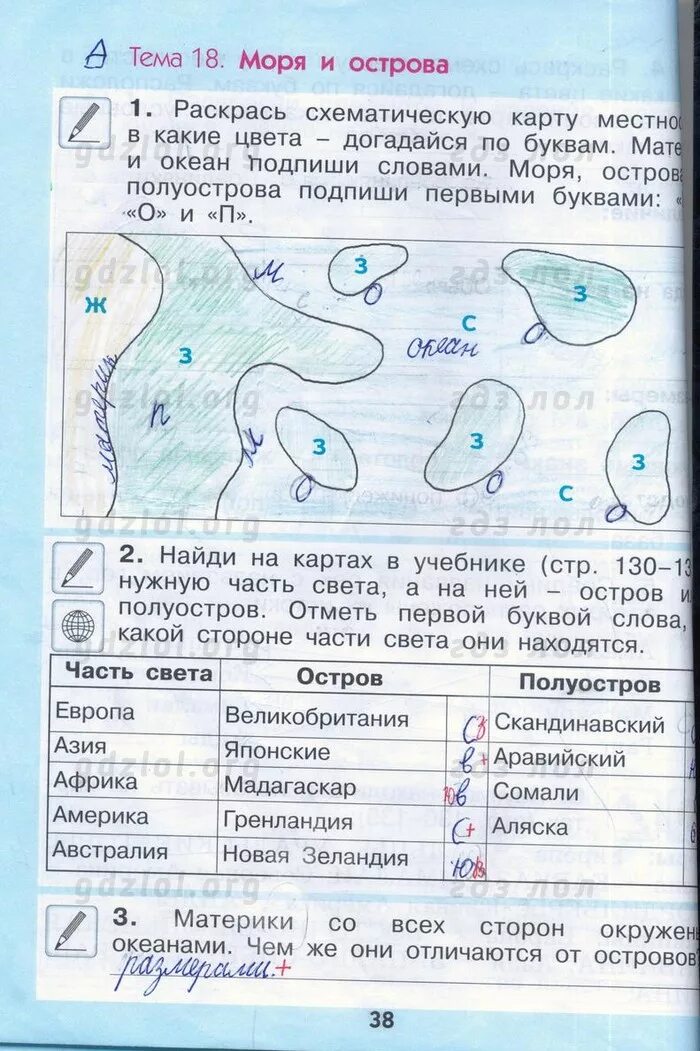 А Тема 18. Моря и острова
1. Раскрась схематическую карту местнос
в какие цвета – догадайся по буквам. Мате
и океан подпиши словами. Моря, острова
полуострова подпиши первыми буквами: «
«О» и «П».
gdzlol.org гдз лол
м З З
О
Ж С О
З океан
материк п
gdzlol.org гдз лол
м З З З
О О С О
gdzlol.org гдз лол
2. Найди на картах в учебнике (стр. 130–13
нужную часть света, а на ней – остров и
полуостров. Отметь первой буквой слова,
какой стороне части света они находятся.
Часть света Остров Полуостров
Европа Великобритания СЗ Скандинавский
Азия Японские в+ Аравийский
Африка Мадагаскар юв Сомали
Америка Гренландия С+ Аляска
Австралия Новая Зеландия ЮВ
gdzlol.org гдз лол
3. Материки со всех сторон окружен
океанами. Чем же они отличаются от островов
размерами.+
38